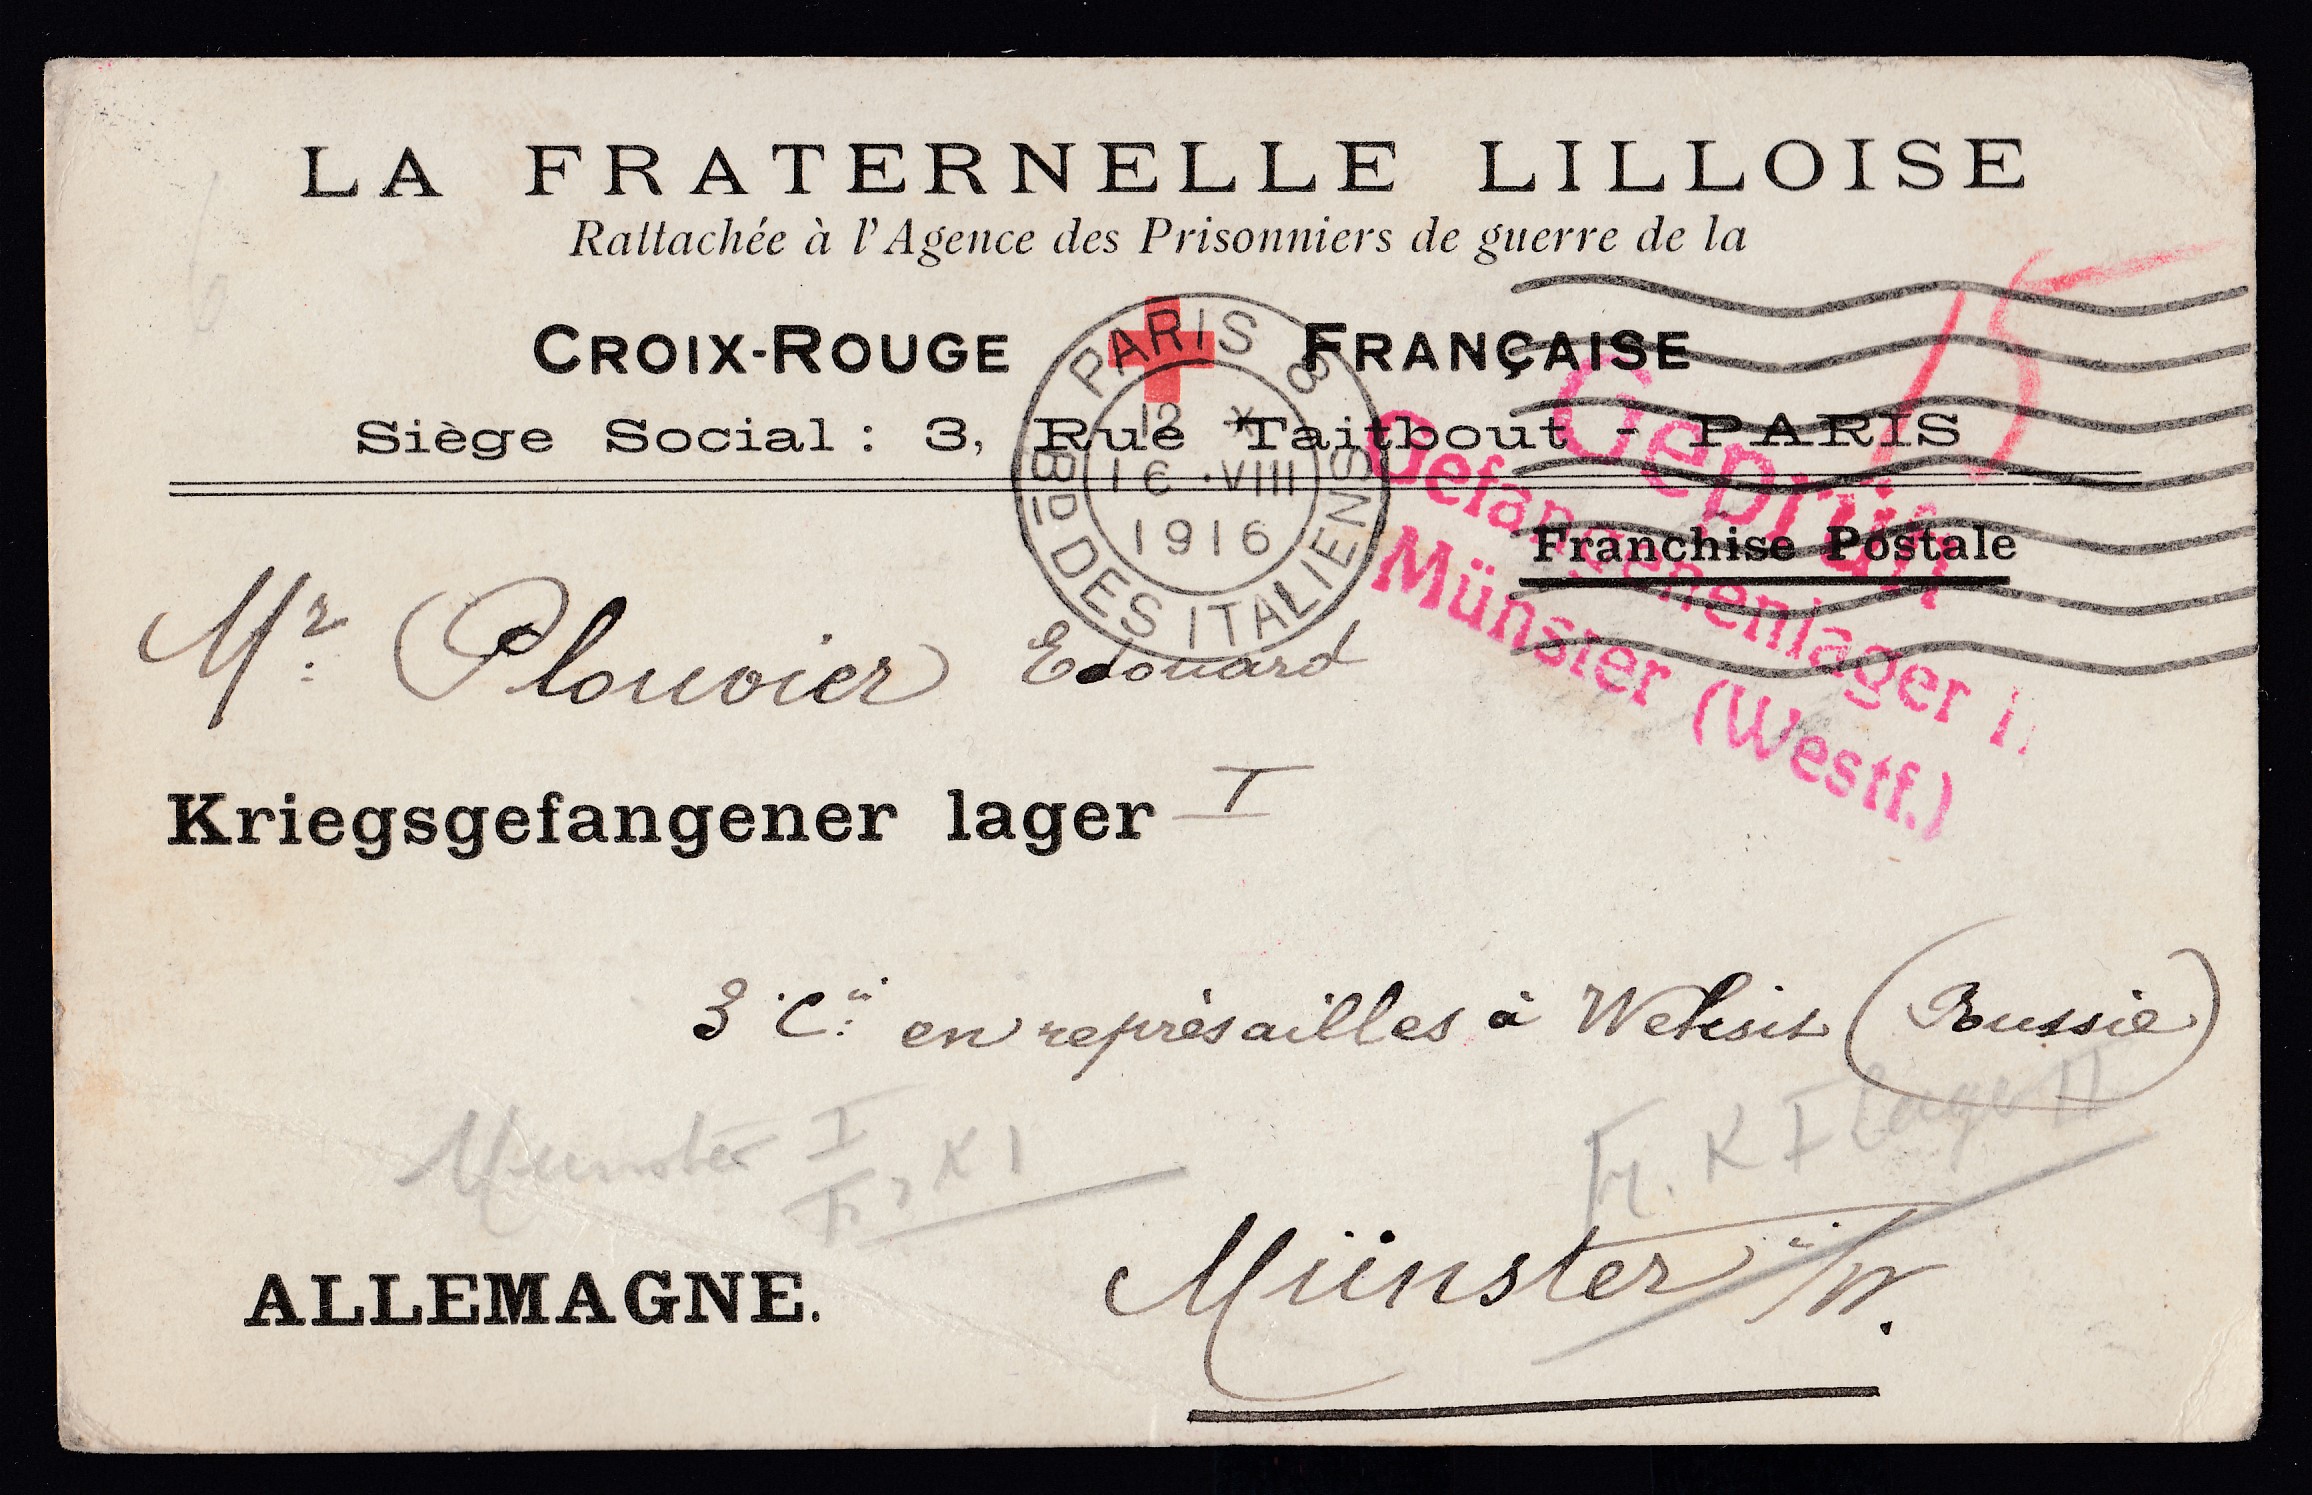 LA FRATERNELLE LILLOISE
Rattachée à l'Agence des Prisonniers de guerre de la
CROIX-ROUGE FRANÇAISE
Siège Social : 3, Rue Taitbout - PARIS
PARIS 8
12 X
16 ·VIII
1916
Bd DES ITALIENS
15
Geprüft
Gefangenenlager II
Münster (Westf.)
Franchise Postale
Mr. Plouvier Edouard
Kriegsgefangener lager I
3 Cie en représailles à (Russie)
Munster I
K I
Fr. K I Lager II
ALLEMAGNE.
Münster i/W.